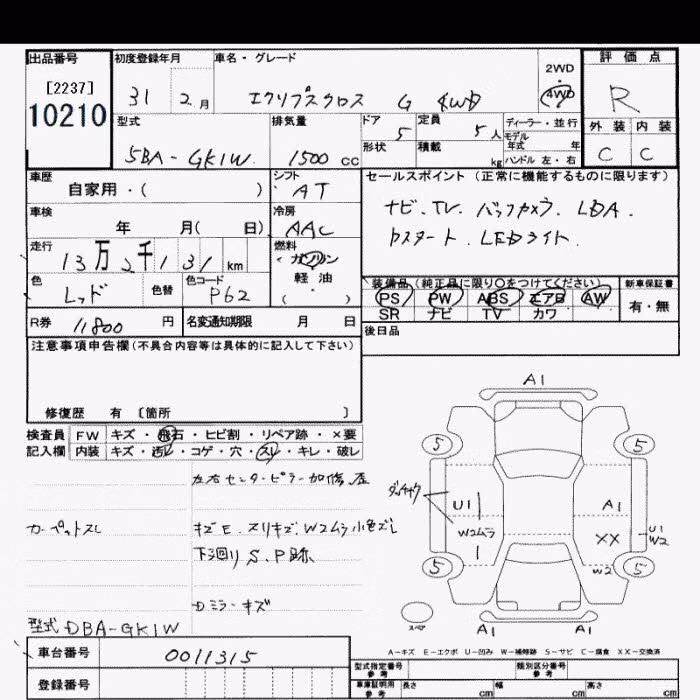 出品番号 初度登録年月 車名・グレード 2WD ・ 4WD 評価点
[2237] 10210
31 2月 エクリプスクロス G 4WD R
型式 排気量 ドア 定員 ディーラー・並行 外装 内装
5BA-GK1W 1500cc 5 5人 モデル年式 年式 C C
形状 積載 kg ハンドル 左・右
車歴 シフト セールスポイント (正常に機能するものに限ります)
自家用・( ) AT
車検 冷房 ナビ、TV、バックカメラ、LDA、
年 月( 日) AAC Pスタート、LEDライト、
走行 燃料
13万2千131km ガソリン
軽・油
( )
色 色替 色コード 装備品 (純正品に限り○をつけてください) 新車保証書
レッド P62 PS PW ABS エアB AW 有・無
SR ナビ TV カワ
R券 11800円 名変通知期限 月 日 後日品
注意事項申告欄(不具合内容等は具体的に記入して下さい)
修復歴 有 〔箇所 〕
検査員 FW キズ・飛石・ヒビ割・リペア跡・×要
記入欄 内装 キズ・汚レ・コゲ・穴・スレ・キレ・破レ
左右センターピラー加修、歪
カーペットスレ キズE、スリキズ、W2ムラ小色ズレ
下廻りS、P跡
Dミラーキズ
型式DBA-GK1W
A1
5 5
U1 A1
W2ムラ XX U1 W2
W2
5 5
スペア A1 A1
A-キズ E-エクボ U-凹み W-補修跡 S-サビ C-腐食 XX-交換済
車台番号 0011315
登録番号
型式指定番号 参考 類別区分番号 参考
車庫証明用 参考 長さ cm 幅 cm 高さ cm